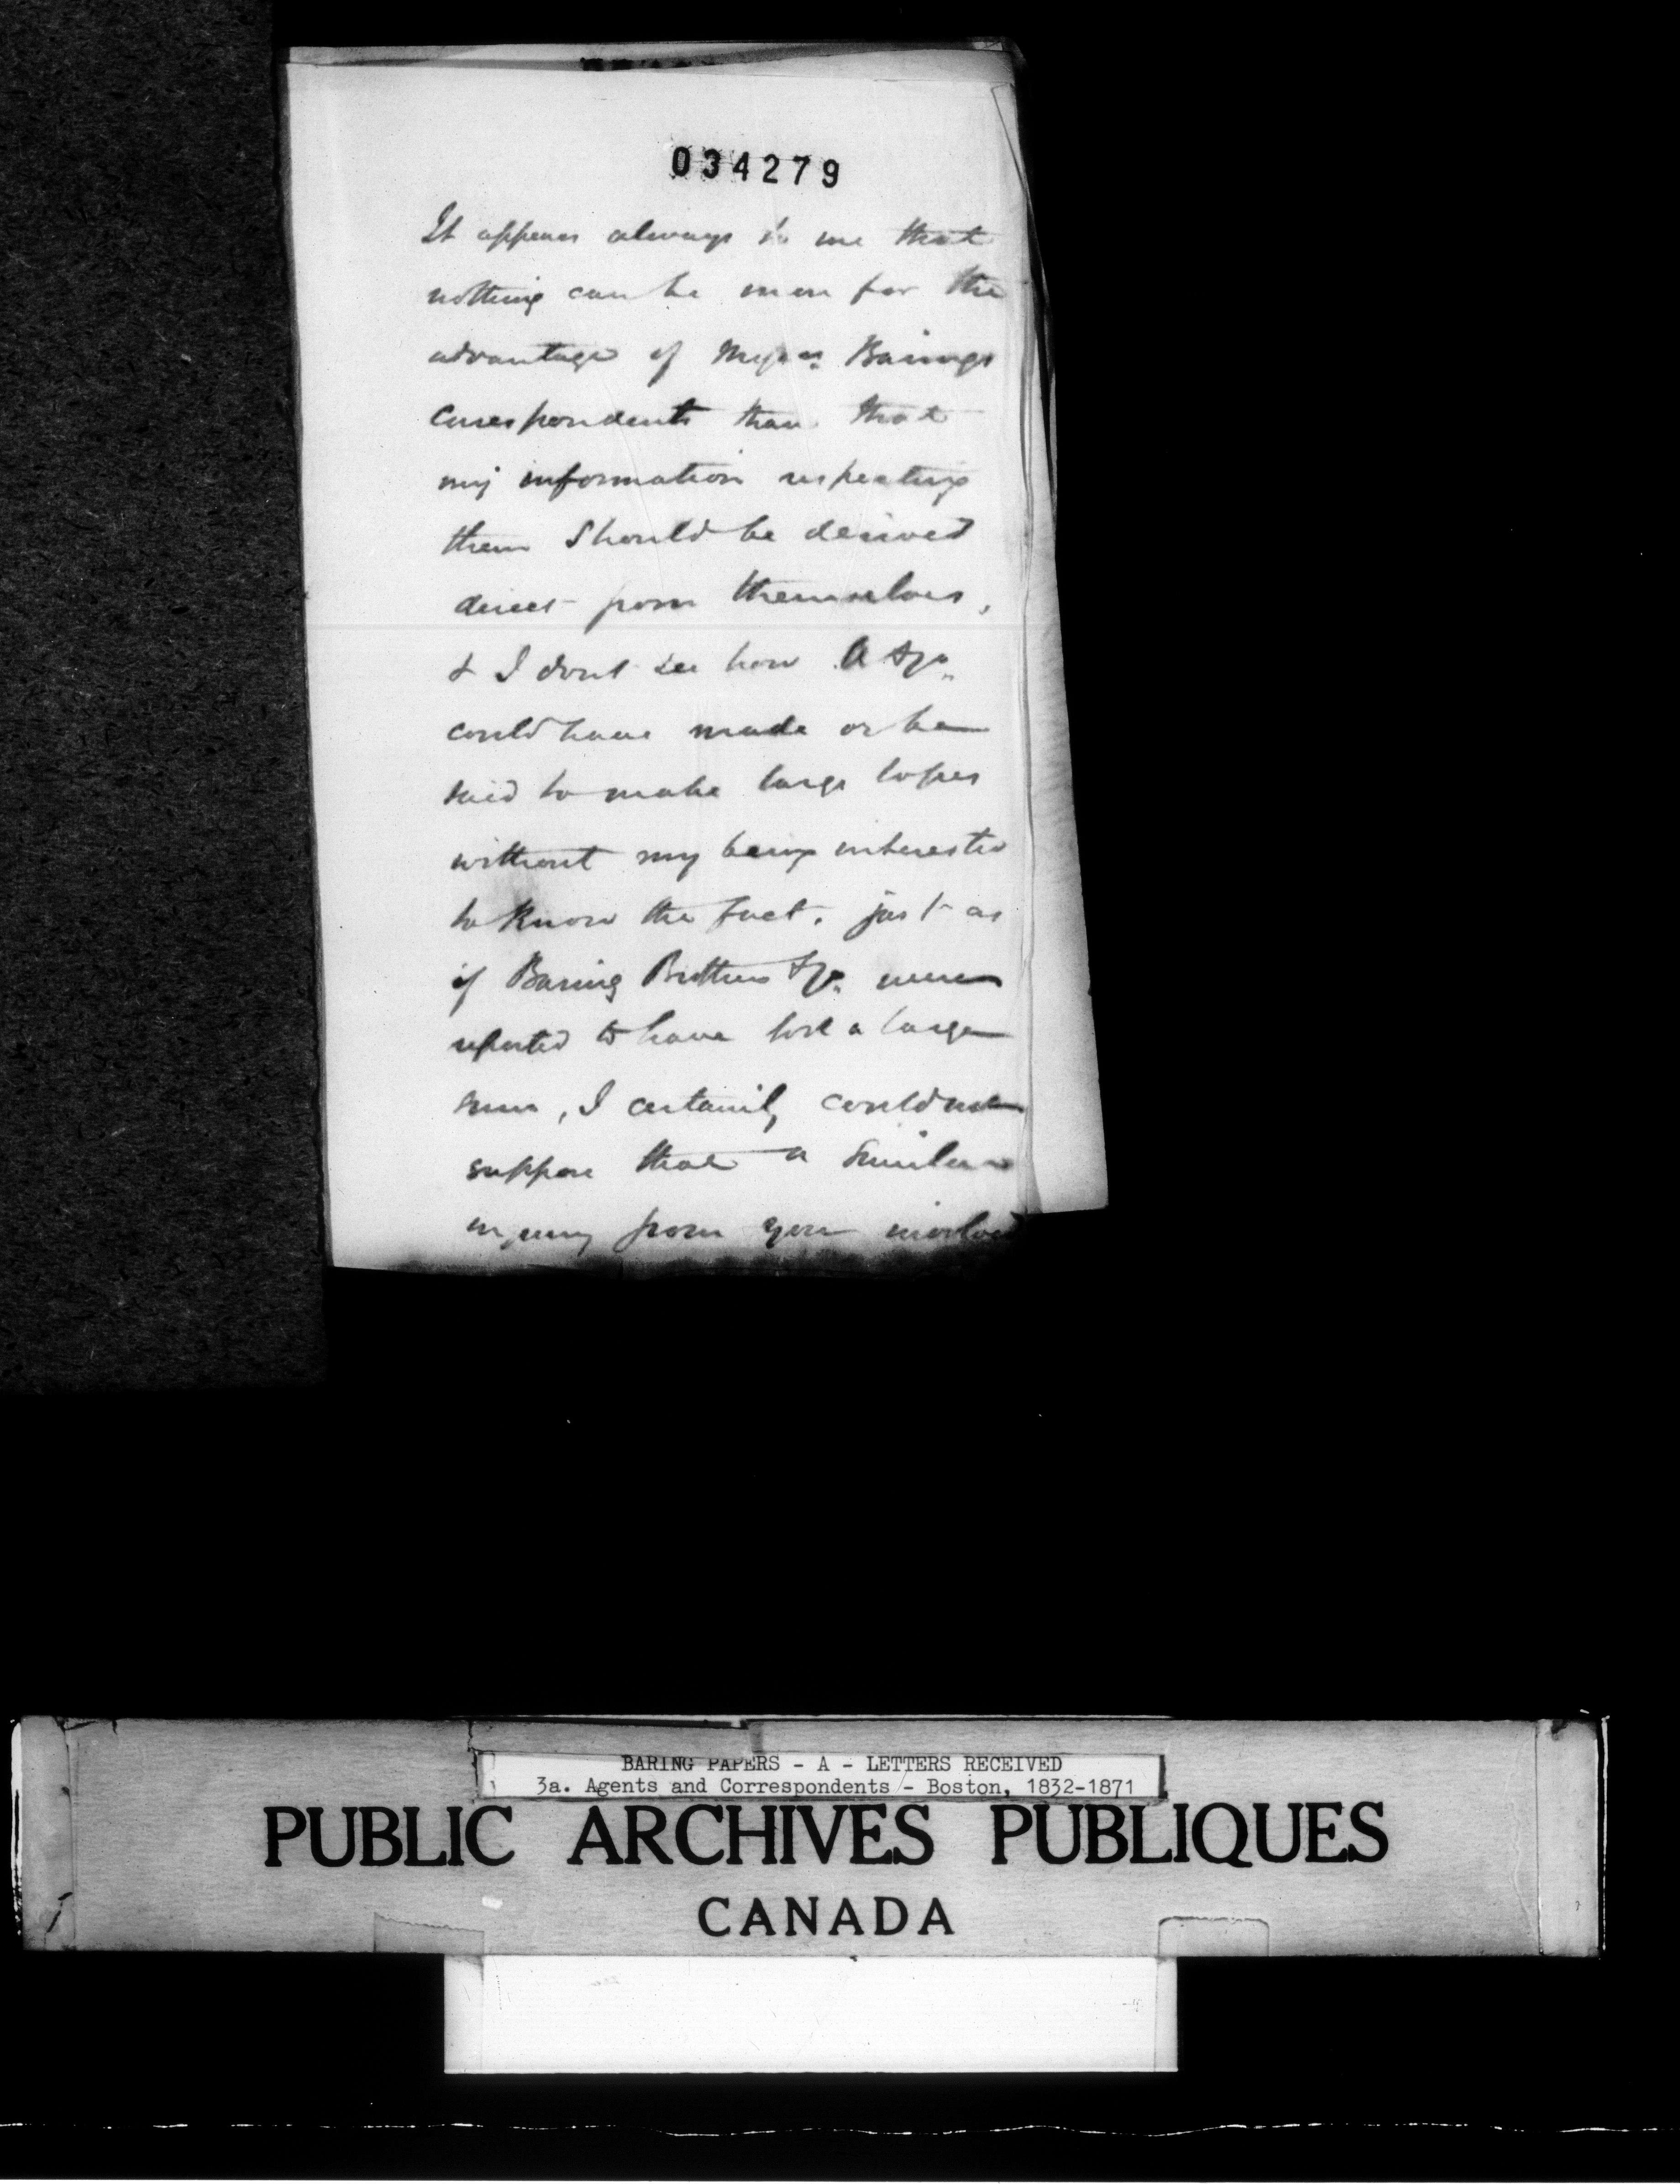 034279
It appears always to me that
nothing can be more for the
advantage of Messrs. Barings
Correspondents than that
my information respecting
them should be derived
direct from themselves,
& I dont see how A & Co.
could have made or be
said to make large losses
without my being interested
to know the fact, just as
if Baring Brothers & Co. were
reported to have lost a large
sum, I certainly could not
suppose that a similar
inquiry from you involved
BARING PAPERS - A - LETTERS RECEIVED
3a. Agents and Correspondents - Boston, 1832-1871
PUBLIC ARCHIVES PUBLIQUES
CANADA